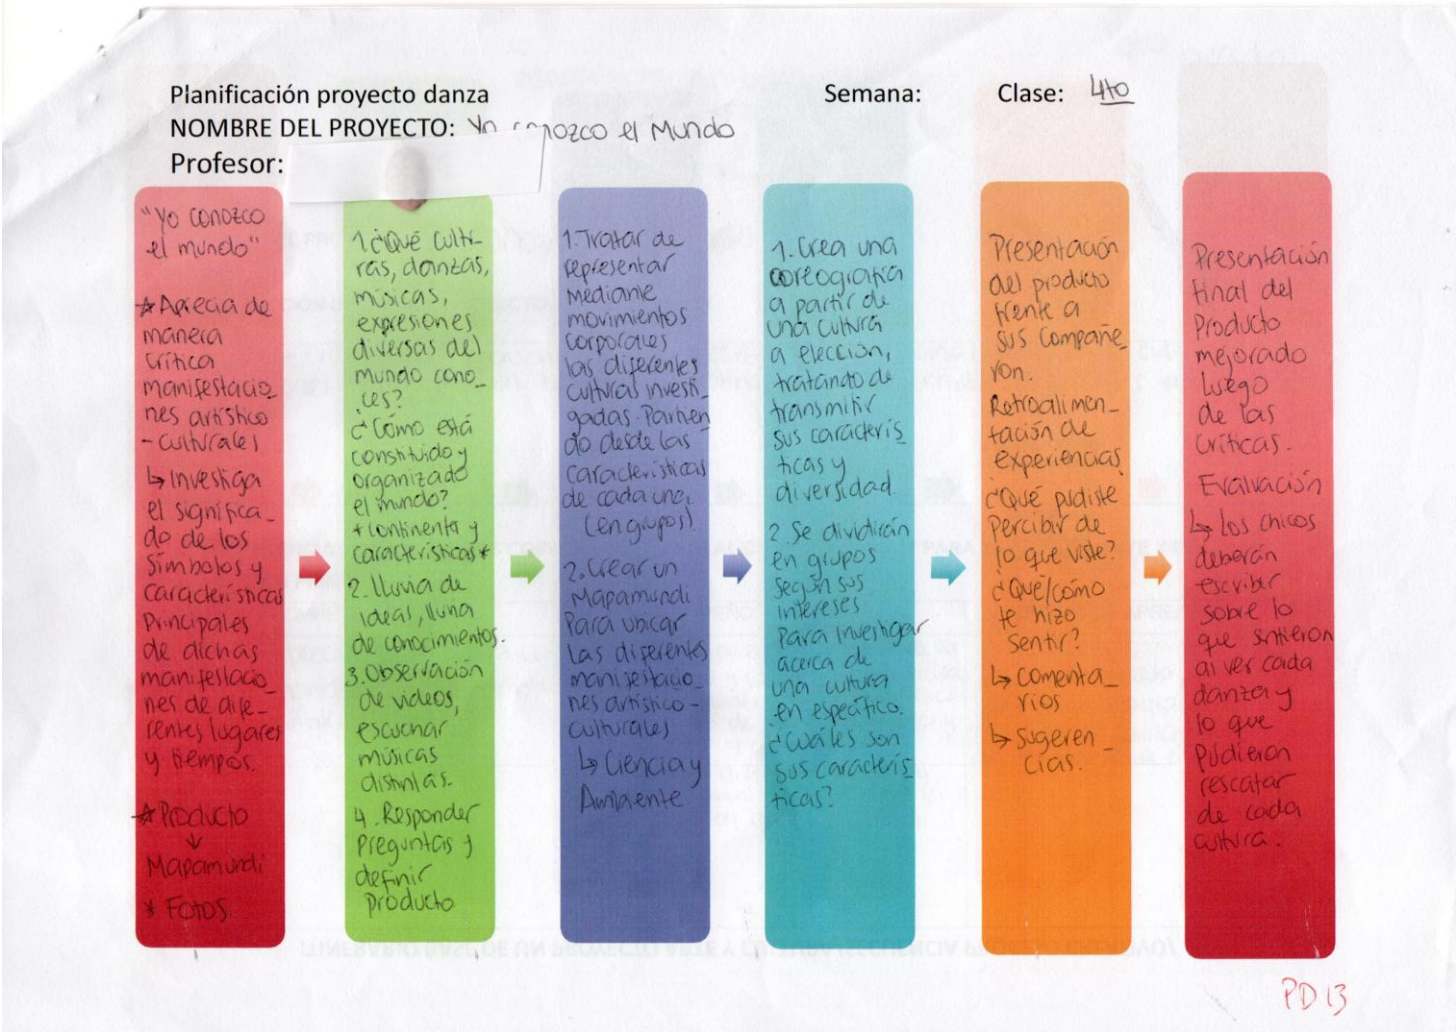 Planificación proyecto danza
Semana:
Clase: 4to
NOMBRE DEL PROYECTO: Yo conozco el Mundo
Profesor:
"Yo conozco
el mundo"
* Aprecia de
manera
crítica
manifestacio_
nes artístico
- culturales
↳ Investiga
el significa_
do de los
símbolos y
características
Principales
de dichas
manifestacio_
nes de dife_
rentes lugares
y tiempos.
* Producto
↓
Mapamundi
* Fotos.
1. ¿Qué cultu-
ras, danzas,
músicas,
expresiones
diversas del
mundo cono_
ces?
¿Cómo está
constituido y
organizado
el mundo?
* continente y
características *
2. lluvia de
ideas, lluvia
de conocimientos.
3. Observación
de videos,
escuchar
músicas
distintas.
4. Responder
Preguntas y
definir
Producto
1. Tratar de
representar
mediante
movimientos
corporales
las diferentes
culturas investi_
gadas. Partien
do desde las
características
de cada una.
(en grupos)
2. Crear un
Mapamundi
Para ubicar
las diferentes
manifestacio_
nes artístico -
culturales
↳ Ciencia y
Ambiente
1. Crea una
coreografía
a partir de
una cultura
a elección,
tratando de
transmitir
sus caracterís_
ticas y
diversidad.
2. Se dividirán
en grupos
según sus
intereses
Para investigar
acerca de
una cultura
en específico.
¿Cuáles son
sus caracterís_
ticas?
Presentación
del producto
frente a
sus compañe_
ron.
Retroalimen_
tación de
experiencias.
¿Qué pudiste
percibir de
lo que viste?
¿Qué/cómo
te hizo
sentir?
↳ comenta_
rios
↳ sugeren_
cias.
Presentación
final del
Producto
mejorado
luego
de las
críticas.
Evaluación
↳ los chicos
deberán
escribir
sobre lo
que sntieron
al ver cada
danza y
lo que
pudieron
rescatar
de cada
cultura.
PD 13